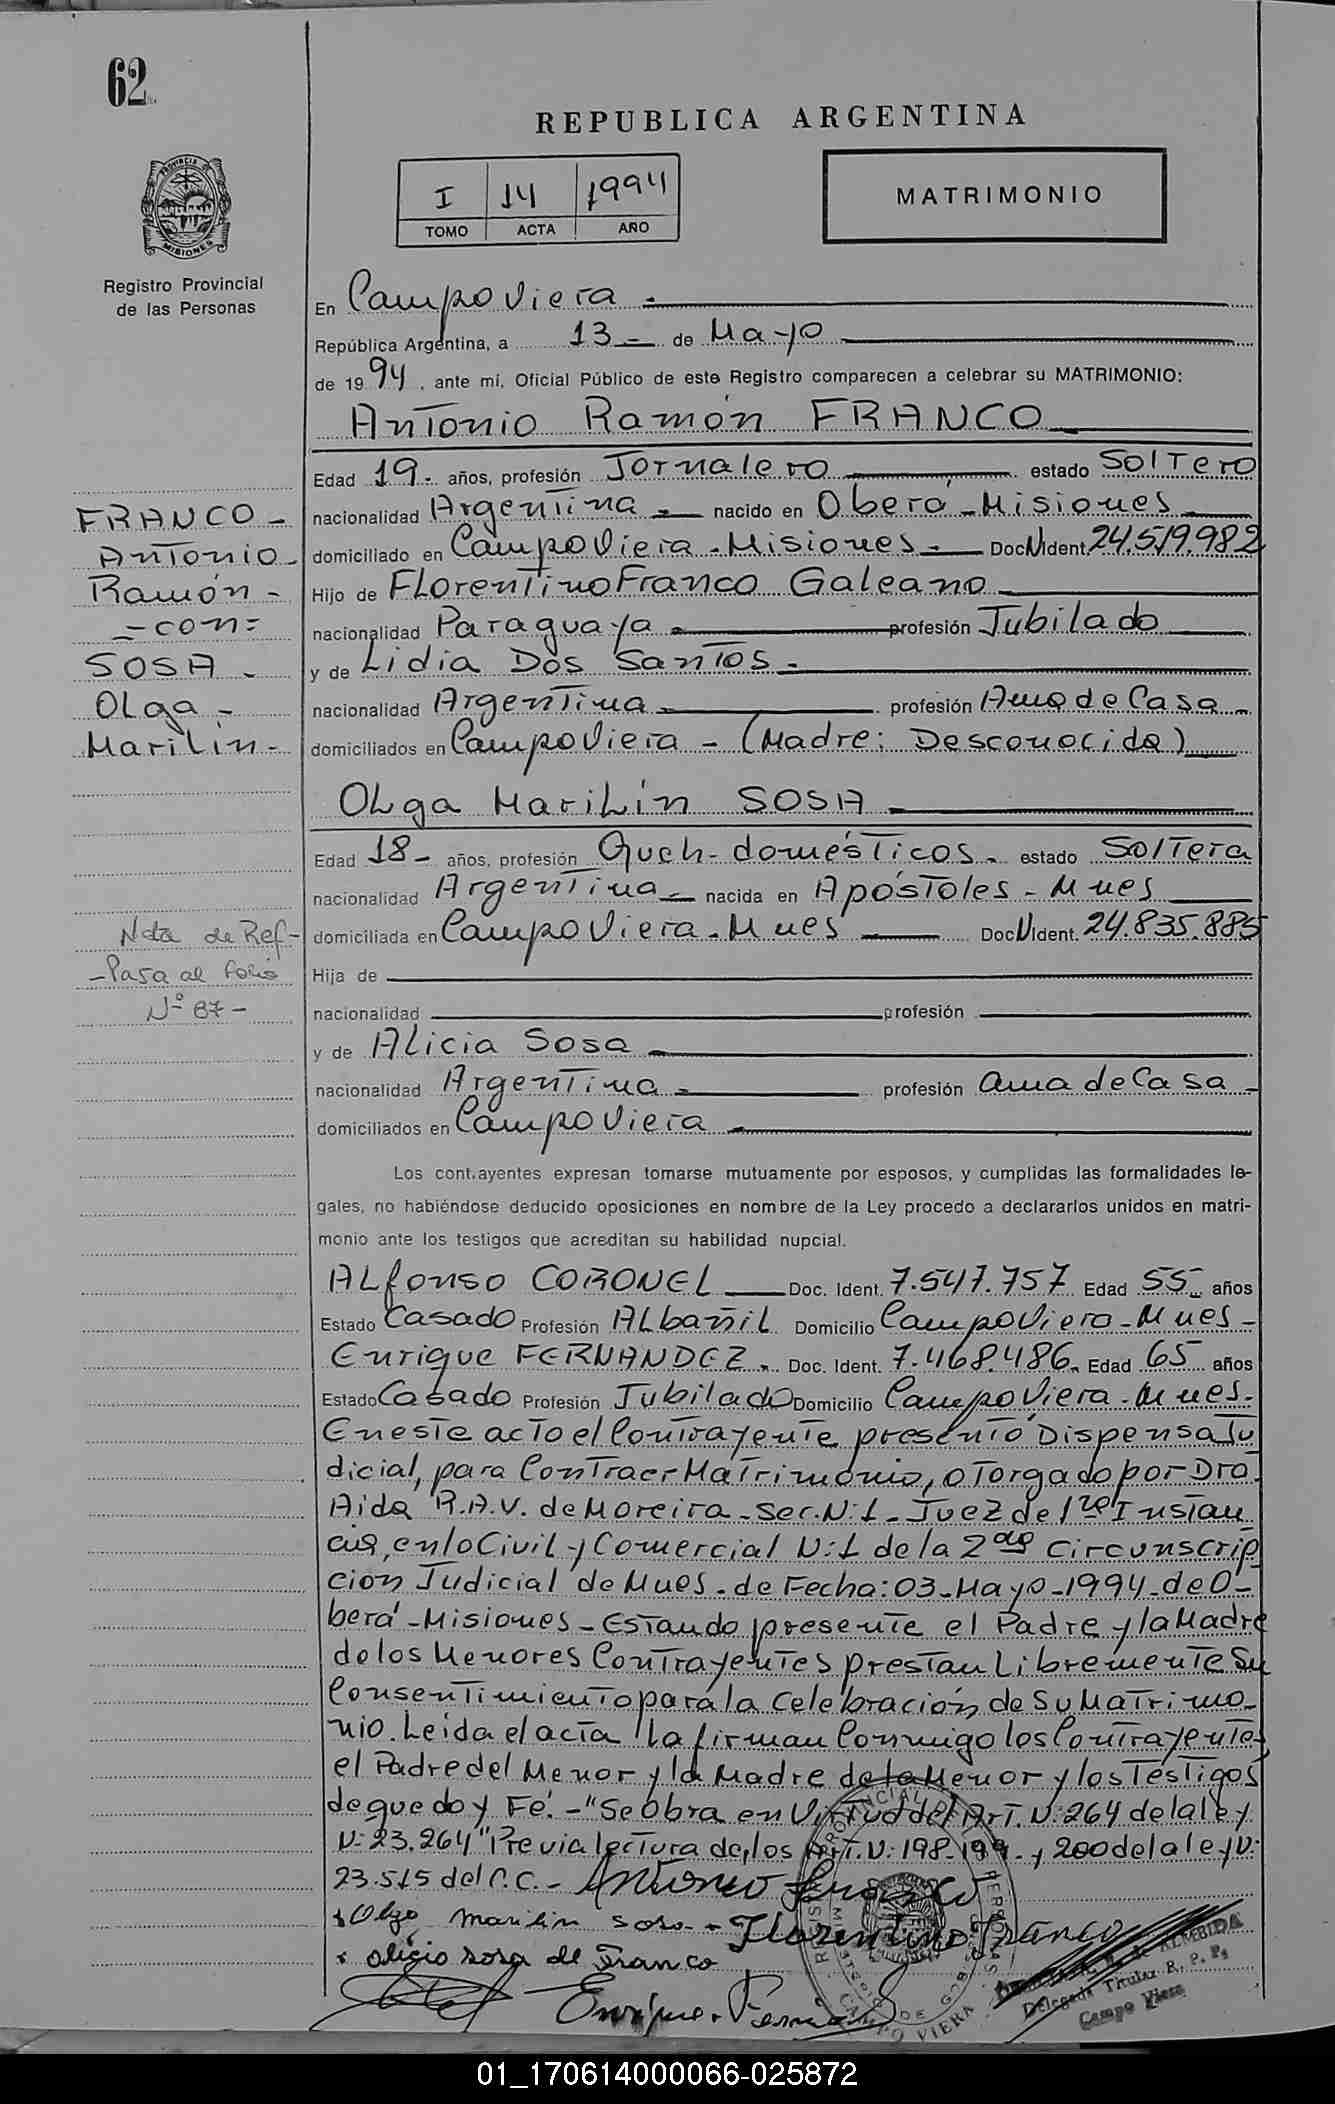 62
REPUBLICA ARGENTINA
I 14 1994
TOMO ACTA AÑO
MATRIMONIO
PROVINCIA
MISIONES
Registro Provincial
de las Personas
En Campo Viera
República Argentina, a 13 de Mayo
de 1994, ante mí, Oficial Público de este Registro comparecen a celebrar su MATRIMONIO:
Antonio Ramón FRANCO
Edad 19. años, profesión Jornalero estado Soltero
nacionalidad Argentina nacido en Oberá - Misiones
domiciliado en Campo Viera - Misiones - Doc N Ident 24.519.982
Hijo de Florentino Franco Galeano
nacionalidad Paraguaya profesión Jubilado
y de Lidia Dos Santos
nacionalidad Argentina profesión Ama de Casa
domiciliados en Campo Viera - (Madre: Desconocida)
FRANCO -
Antonio -
Ramón -
= con =
SOSA -
Olga -
Marilin -
Olga Marilín SOSA
Edad 18 - años, profesión Queh- domésticos. estado Soltera
nacionalidad Argentina nacida en Apóstoles - Mnes
domiciliada en Campo Viera - Mnes Doc N Ident. 24.835.885
Hija de
nacionalidad profesión
y de Alicia Sosa
nacionalidad Argentina profesión ama de Casa -
domiciliados en Campo Viera
Nota de Ref-
- Pasa al folio
Nº 87 -
Los contrayentes expresan tomarse mutuamente por esposos, y cumplidas las formalidades le-
gales, no habiéndose deducido oposiciones en nombre de la Ley procedo a declararlos unidos en matri-
monio ante los testigos que acreditan su habilidad nupcial.
Alfonso CORONEL Doc. Ident. 7.547.757 Edad 55 años
Estado Casado Profesión Albañil Domicilio Campo Viera - Mnes -
Enrique FERNANDEZ. Doc. Ident. 7.468.486 Edad 65 años
Estado Casado Profesión Jubilado Domicilio Campo Viera - Mnes.
En este acto el Contrayente presentó Dispensa Ju
dicial, para Contraer Matrimonio, otorgado por Dra.
Aida R.A.V. de Moreira - Sec. N:1 - Juez de 1ra Instan
cia, en lo Civil y Comercial N:1 de la 2da Circunscrip
ción Judicial de Mnes. de Fecha: 03-Mayo-1994 - de O-
berá - Misiones - Estando presente el Padre y la Madre
de los Menores Contrayentes prestan Libremente Su
Consentimiento para la Celebración de Su Matrimo-
nio. Leída el acta la firman Conmigo los Contrayentes,
el Padre del Menor y la Madre de la Menor y los Testigos
de que doy Fé. - "Se Obra en Virtud del Art. N: 264 de la ley
N: 23.264" Previa lectura de los Art. N: 198 - 199 - y 200 de la ley N:
23.515 del C.C. - Antonio Franco
Olga marilin sosa - Florentino Franco
alicia sosa de Franco
Enrique Fernandez
ALMEIDA
Delegada Titular R. P. P.
Campo Viera
CAMPO VIERA
01_170614000066-025872